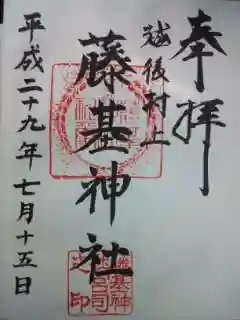 奉拝
越後村上
藤基神社
平成二十九年七月十五日